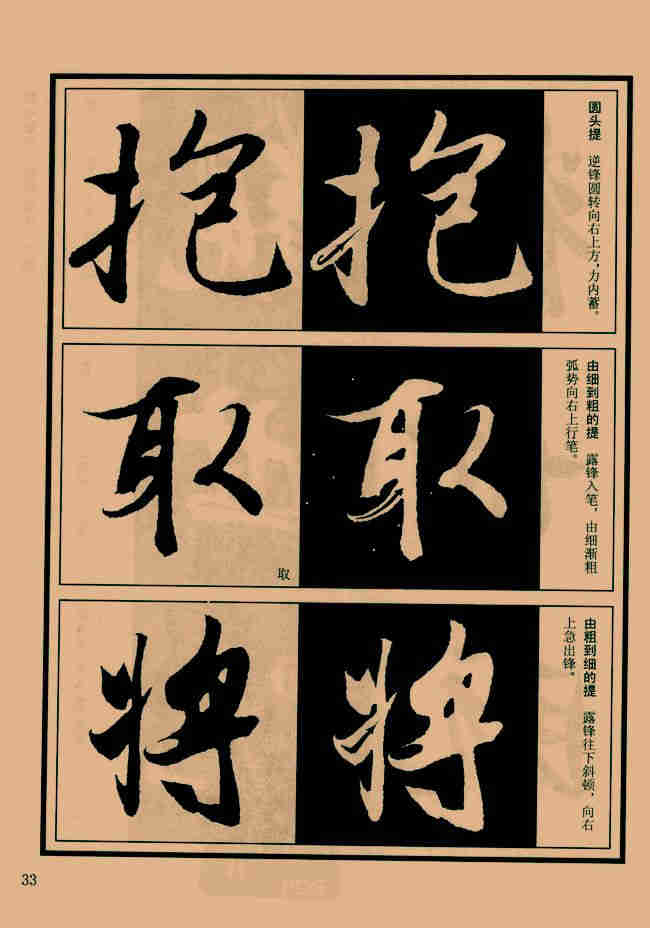 圆头提　逆锋圆转向右上方，力内蓄。
抱
抱
由细到粗的提　露锋入笔，由细渐粗
弧势向右上行笔。
取
取
取
由粗到细的提　露锋往下斜顿，向右
上急出锋。
将
将
33